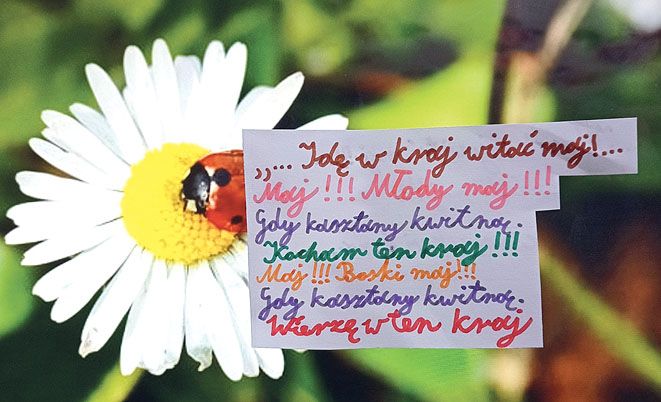 „... Idę w kraj witać maj!...
Maj!!! Młody maj!!!
Gdy kasztany kwitną.
Kocham ten kraj!!!
Maj!!! Boski maj!!!
Gdy kasztany kwitną.
Wierzę w ten kraj